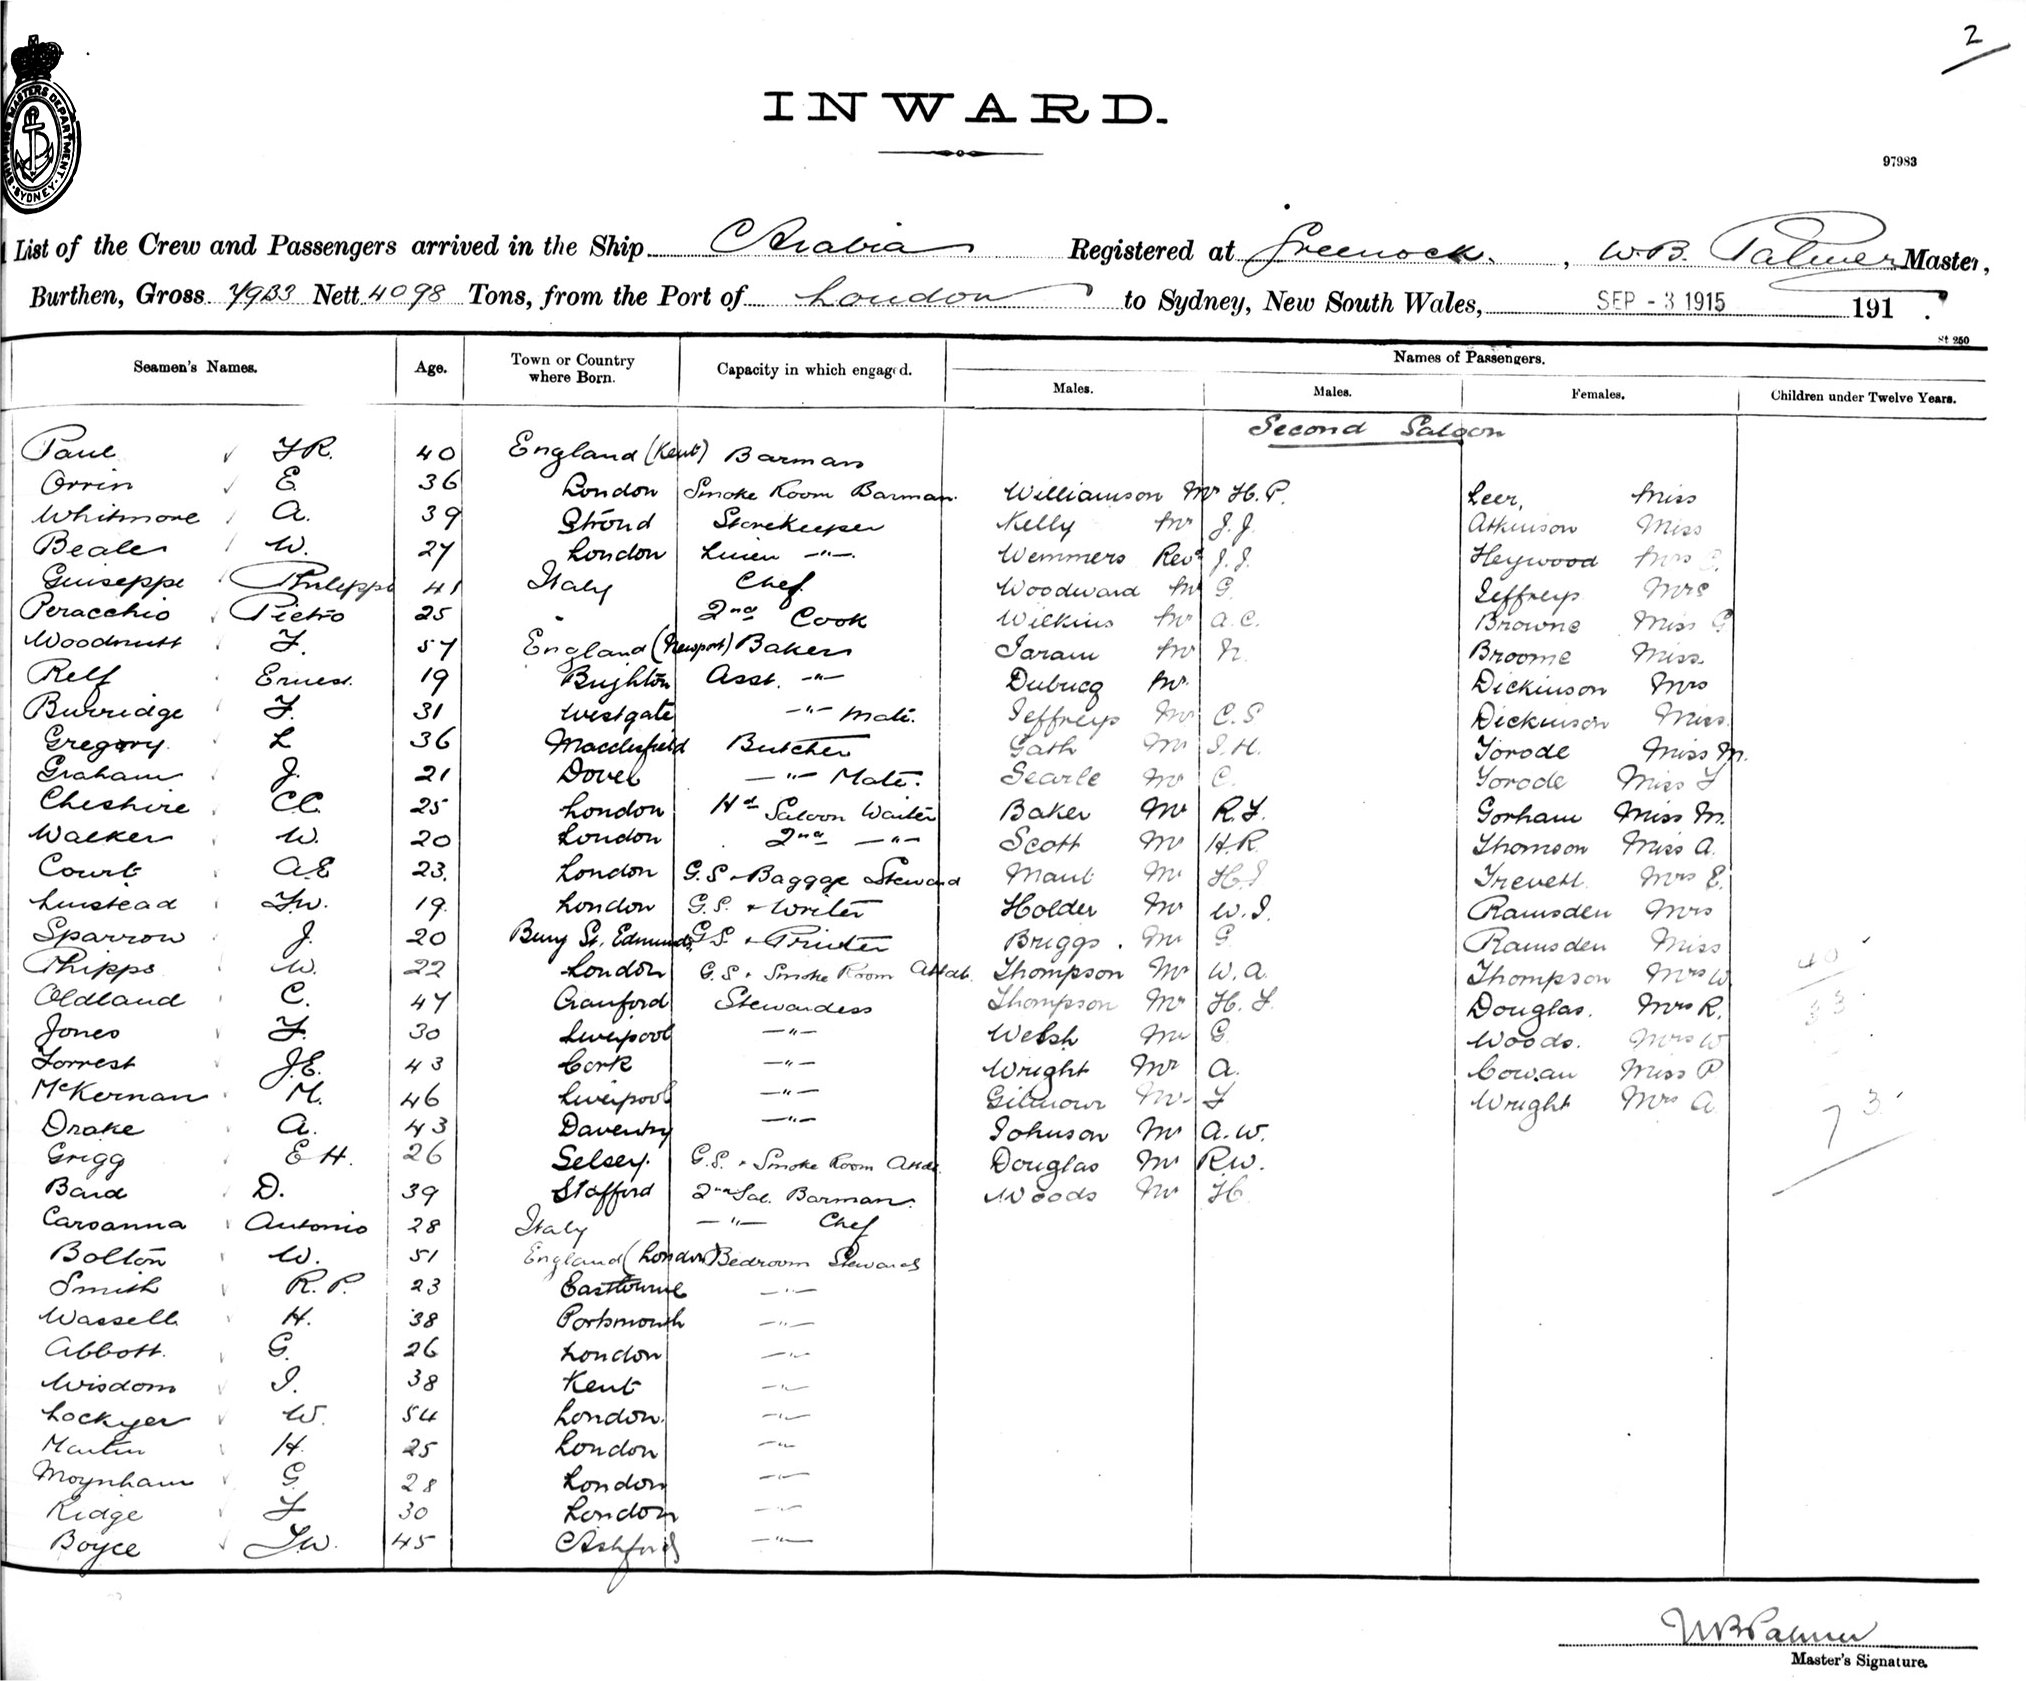 2
INWARD.
97983
SHIPPING MASTERS DEPARTMENT SYDNEY
List of the Crew and Passengers arrived in the Ship Arabia Registered at Greenock. , W.B. Palmer Master,
Burthen, Gross 7933 Nett 4098 Tons, from the Port of London to Sydney, New South Wales, SEP - 3 1915 191 .
St 250
Seamen's Names. Age. Town or Country where Born. Capacity in which engaged. Names of Passengers.
Males. Males. Females. Children under Twelve Years.
Second Saloon
Paul F.R. 40 England (Kent) Barman
Orrin E. 36 London Smoke Room Barman. Williamson Mr H.P. Leer, Miss
Whitmore A. 39 Stroud Storekeeper Kelly Mr J.J. Atkinson Miss
Beale W. 27 London Linen -"- Wemmers Revd J.J. Heywood Mrs
Guiseppe Philippi 41 Italy Chef Woodward Mr G. Jeffreys Mrs
Peracchio Pietro 25 " 2nd Cook Wilkins Mr A.C. Browne Miss G
Woodnutt F. 57 England (Newport) Baker Mr Broome Miss
Relf Ernest. 19 Brighton Asst. -"- Dubucq Mr Dickinson Mrs
Burridge F. 31 Westgate -"- Mate. Jeffreys Mr C.S Dickinson Miss
Gregory. L 36 Macclesfield Butcher Gath Mr J.H. Torode Miss M.
Graham J. 21 Dover -"- Mate. Searle Mr C. Torode Miss F
Cheshire C.C. 25 London Hd Saloon Waiter Baker Mr R.F. Gorham Miss M.
Walker W. 20 London 2nd -"- Scott Mr H.R Thomson Miss A.
Court A.E 23. London G.S + Baggge Steward Mant Mr Trevett Mrs E.
Linstead F.W. 19 London G.S. + Writer Holder Mr W.J. Ramsden Mrs
Sparrow J. 20 Bury St. Edmunds G.S + Printer Briggs. Mr G Ramsden Miss
Phipps W. 22 London G.S + Smoke Room Attdt. Thompson Mr W.A. Thompson Mrs W 40
Oldland C. 47 Cranford Stewardess Thompson Mr H.F. Douglas. Mrs R. 33
Jones F. 30 Liverpool -"- Welsh Mr G Woods. Mrs W
Forrest J.E. 43 Cork -"- Wright Mr A. Cowan Miss P
McKernan M. 46 Liverpool -"- Gilmour Mr F Wright Mrs A 73
Drake A. 43 Daventry -"- Johnson Mr A.W.
Grigg E H. 26 Selsey. G.S. + Smoke Room Attdt. Douglas Mr R.W.
Baird D. 39 Stafford 2nd Sal. Barman. Woods Mr H
Antonio 28 Italy -"- Chef
Bolton W. 51 England (London) Bedroom Steward
Smith R.P. 23 Eastbourne -"-
Wassell H. 38 Portsmouth -"-
Abbott. G. 26 London -"-
Wisdom J. 38 Kent -"-
Lockyer W. 54 London. -"-
Martin H. 25 London -"-
Moynham G 28 London -"-
Ridge F 30 London -"-
Boyce F.W. 45 Ashford -"-
WB Palmer
Master's Signature.